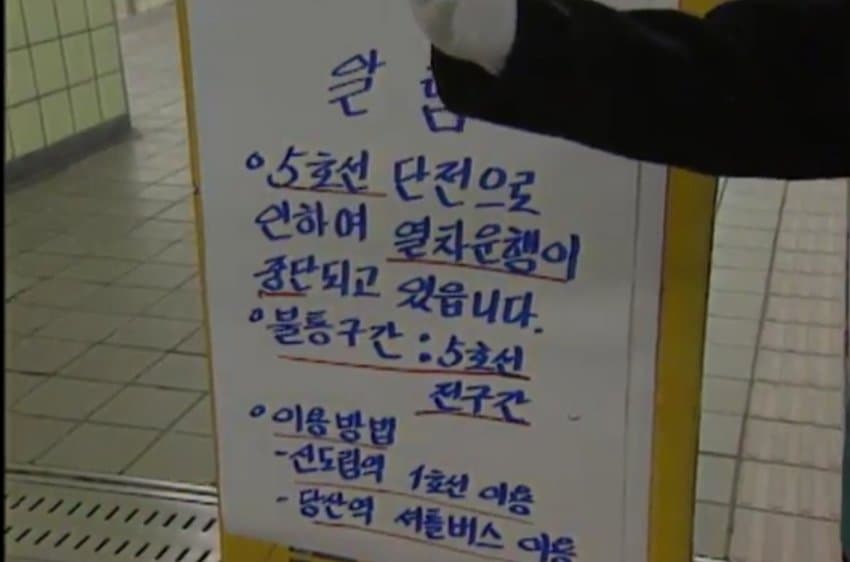 알림
◦ 5호선 단전으로
인하여 열차운행이
중단되고 있읍니다.
◦ 불통구간 : 5호선
전구간
◦ 이용방법
- 신도림역 1호선 이용
- 당산역 셔틀버스 이용